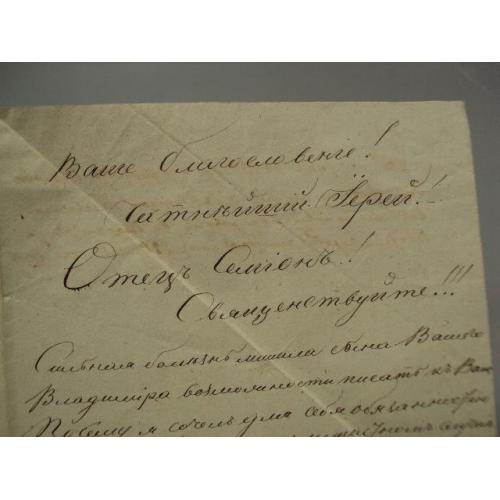 Ваше благословенiе!
Честнѣйший Iерей!
Отецъ Семiонъ!
Священствуйте!!!
Сильная болезнь лишила сына Вашего
Владимiра возможности писать къ Вамъ
Посему я счелъ себя обязанностью